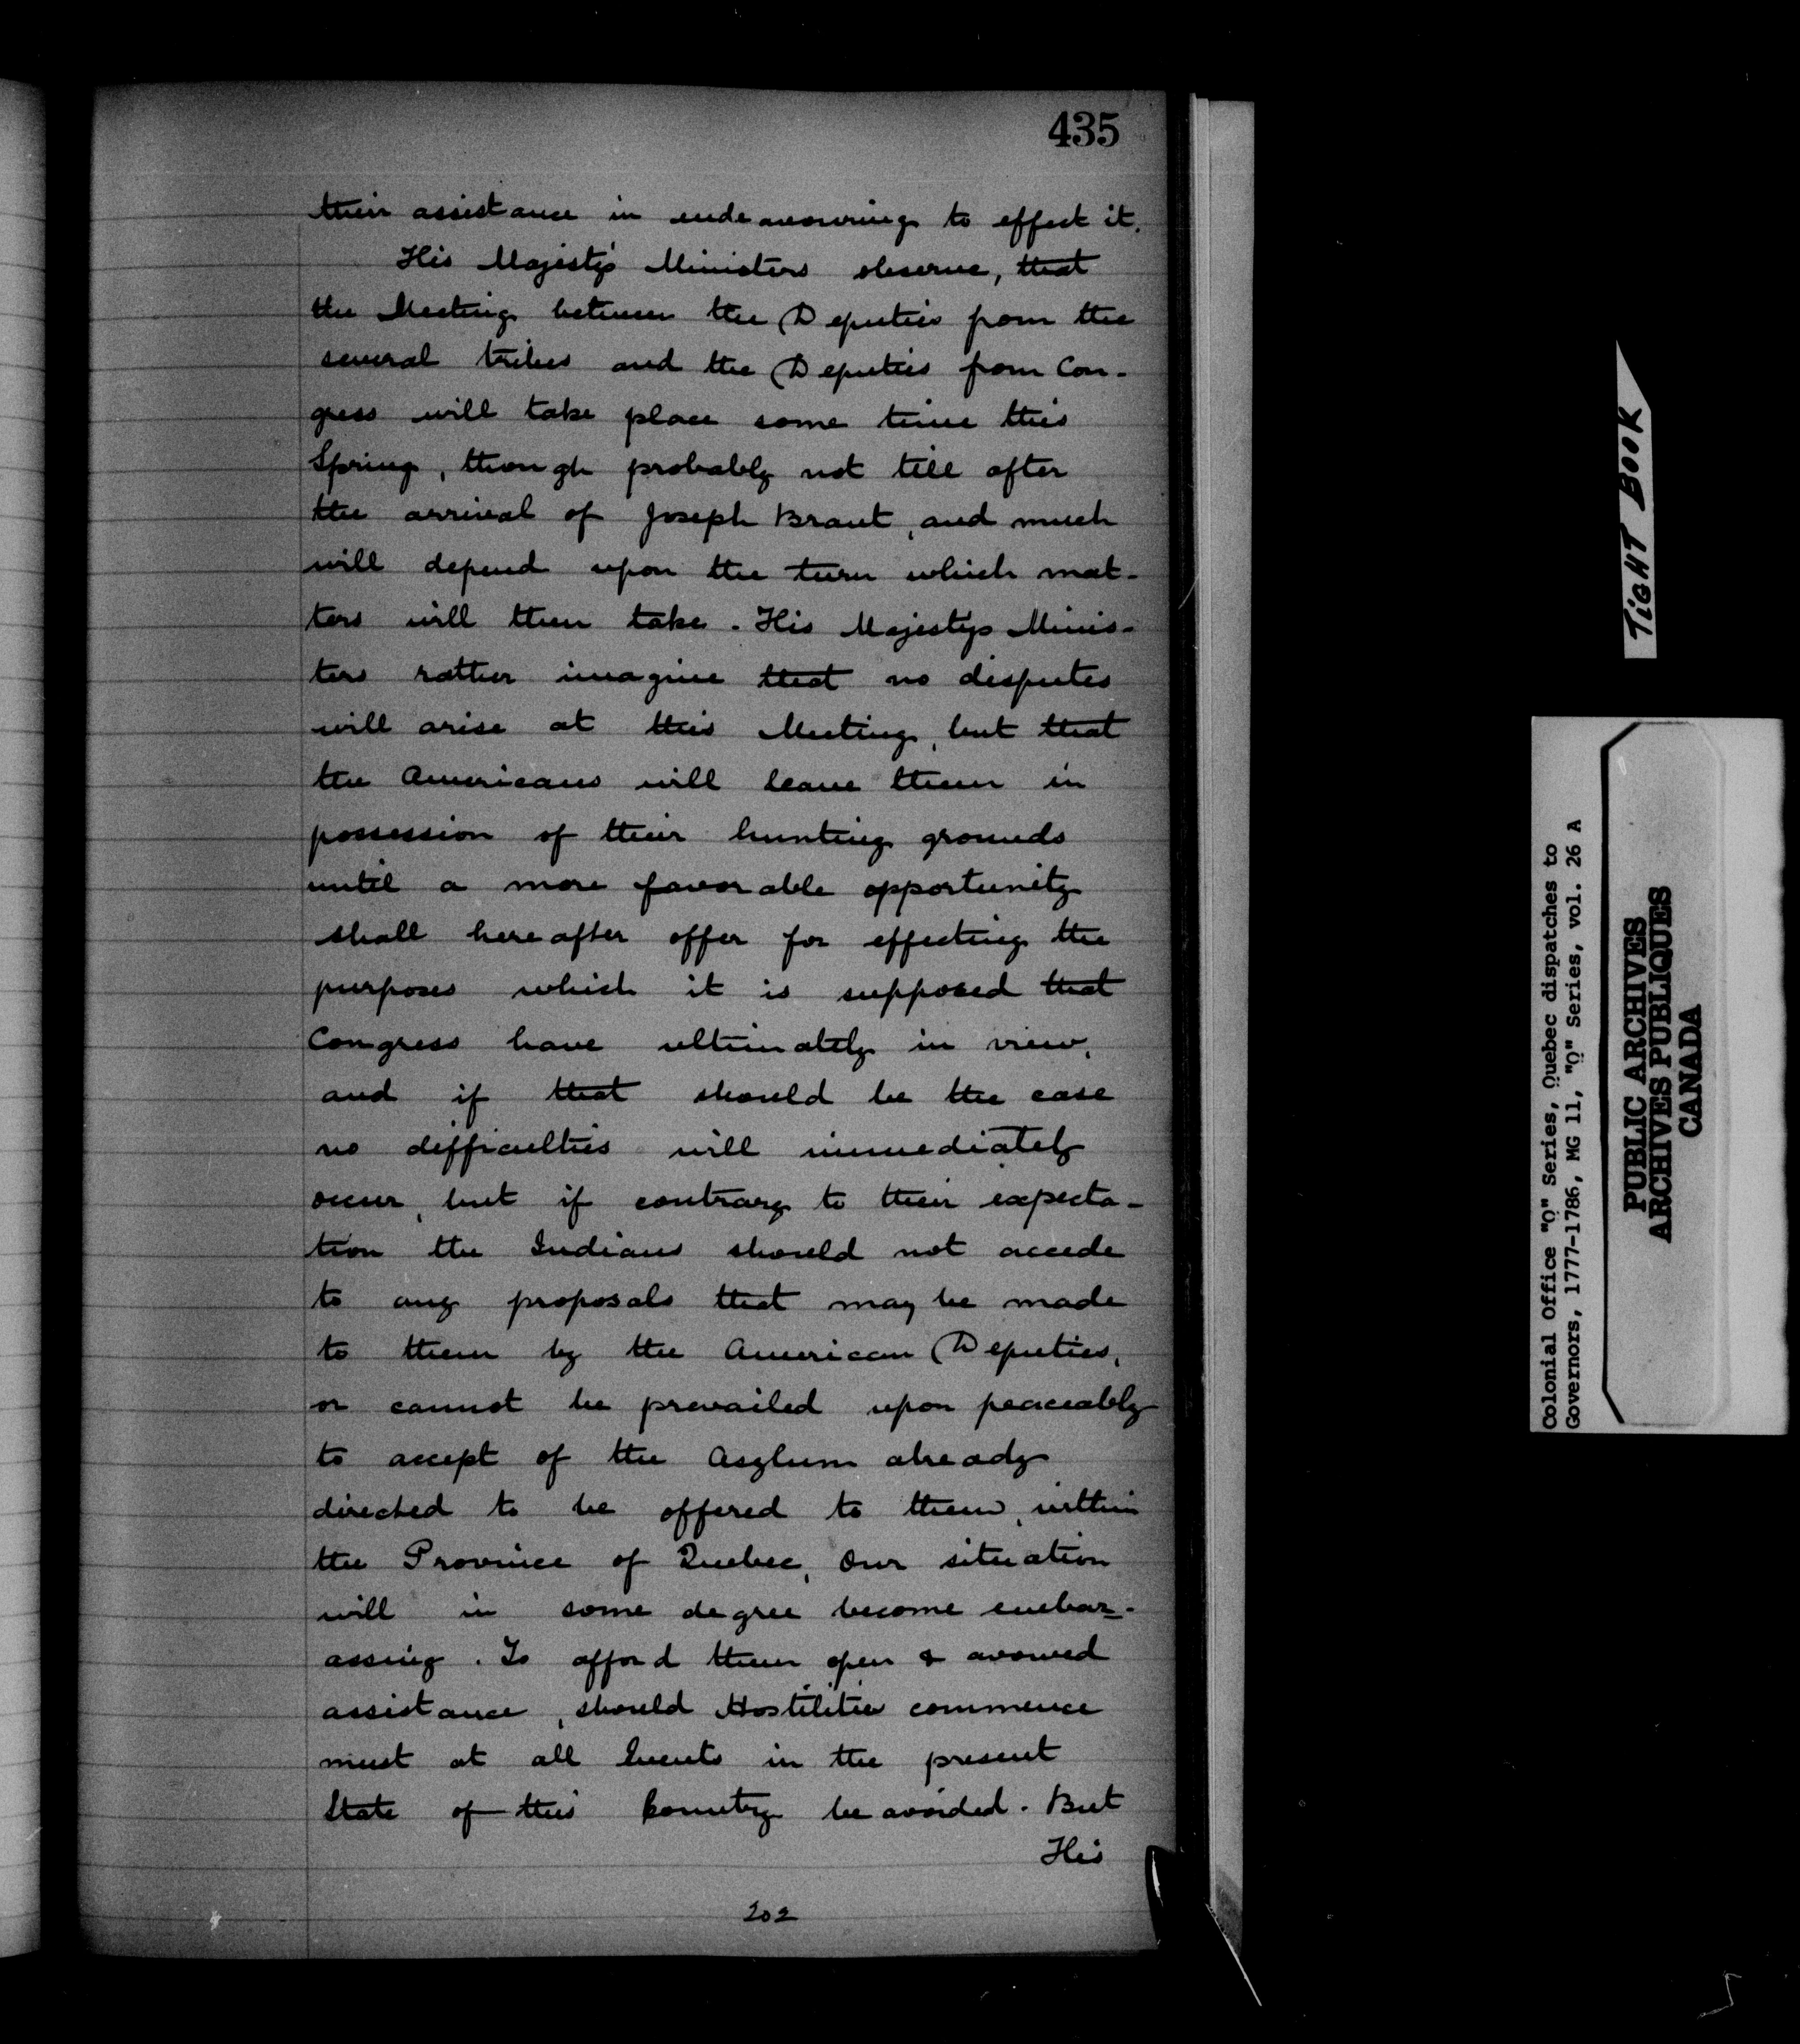 435
their assistance in endeavouring to effect it.
His Majesty's Ministers observe, that
the Meeting between the Deputies from the
several tribes and the Deputies from Con-
gress will take place some time this
Spring, though probably not till after
the arrival of Joseph Brant, and much
will depend upon the turn which mat-
ters will then take. His Majestys Minis-
ters rather imagine that no disputes
will arise at this Meeting, but that
the Americans will leave them in
possession of their hunting grounds
until a more favorable opportunity
shall hereafter offer for effecting the
purposes which it is supposed that
Congress have ultimately in view,
and if that should be the case
no difficulties will immediately
occur, but if contrary to their expecta-
tion the Indians should not accede
to any proposals that may be made
to them by the American Deputies,
or cannot be prevailed upon peaceably
to accept of the Asylum already
directed to be offered to them, within
the Province of Quebec, Our situation
will in some degree become embar-
assing. To afford them open & avowed
assistance, should Hostilities commence
must at all Events in the present
State of this Country be avoided. But
His
202
TIGHT BOOK
Colonial Office "Q" Series, Quebec dispatches to
Governors, 1777-1786, MG 11, "Q" Series, vol. 26 A
PUBLIC ARCHIVES
ARCHIVES PUBLIQUES
CANADA